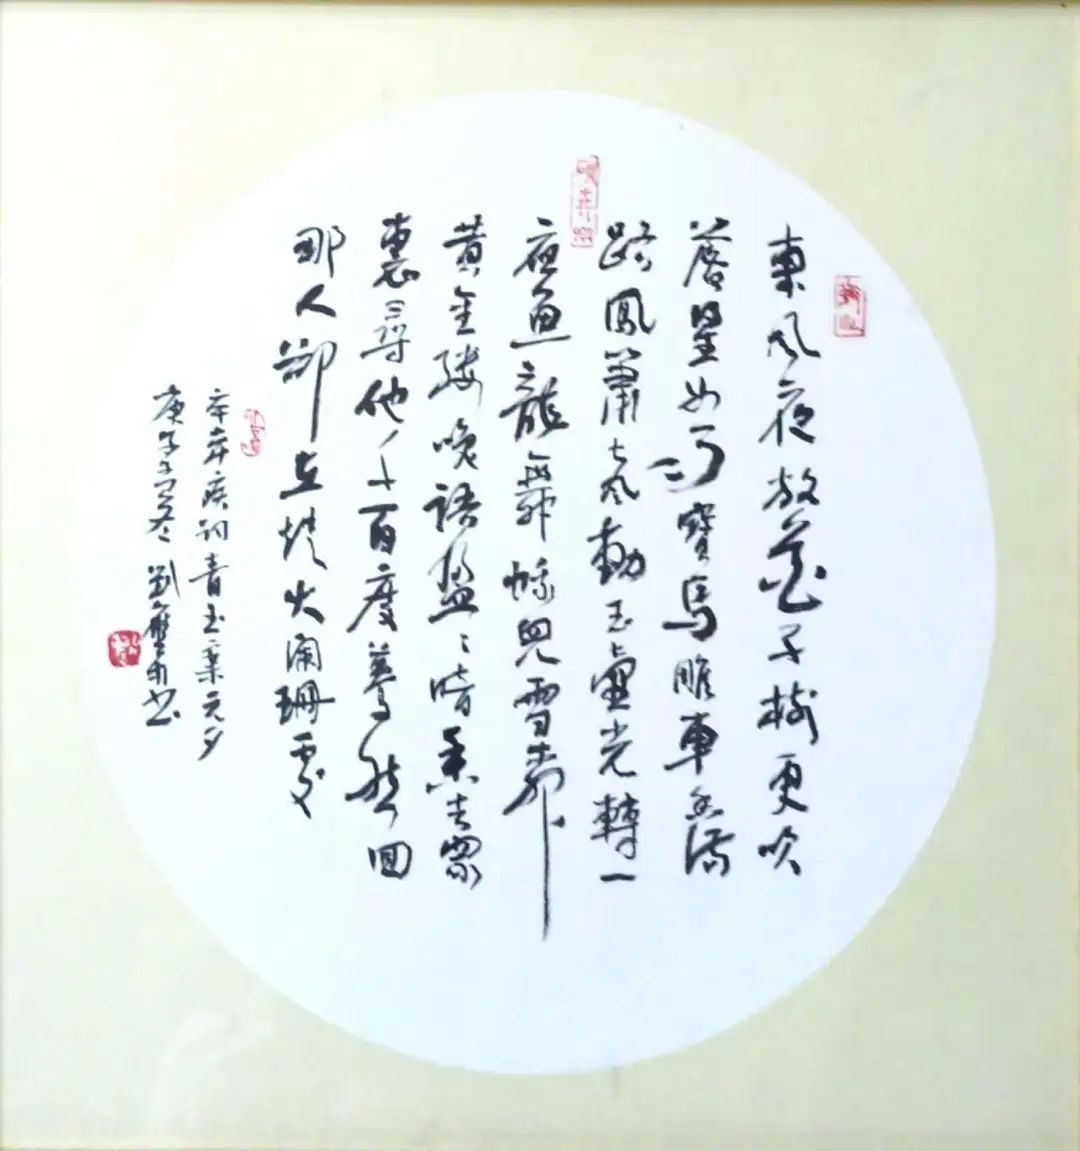 東風夜放花千樹更吹
落星如雨寶馬雕車香滿
路鳳簫声動玉壺光轉一
夜魚龍舞蛾兒雪柳
黃金縷笑語盈〻暗香去眾
裏尋他千百度驀然回
那人卻在燈火闌珊處
辛弃疾詞青玉案元夕
庚子之冬劉書